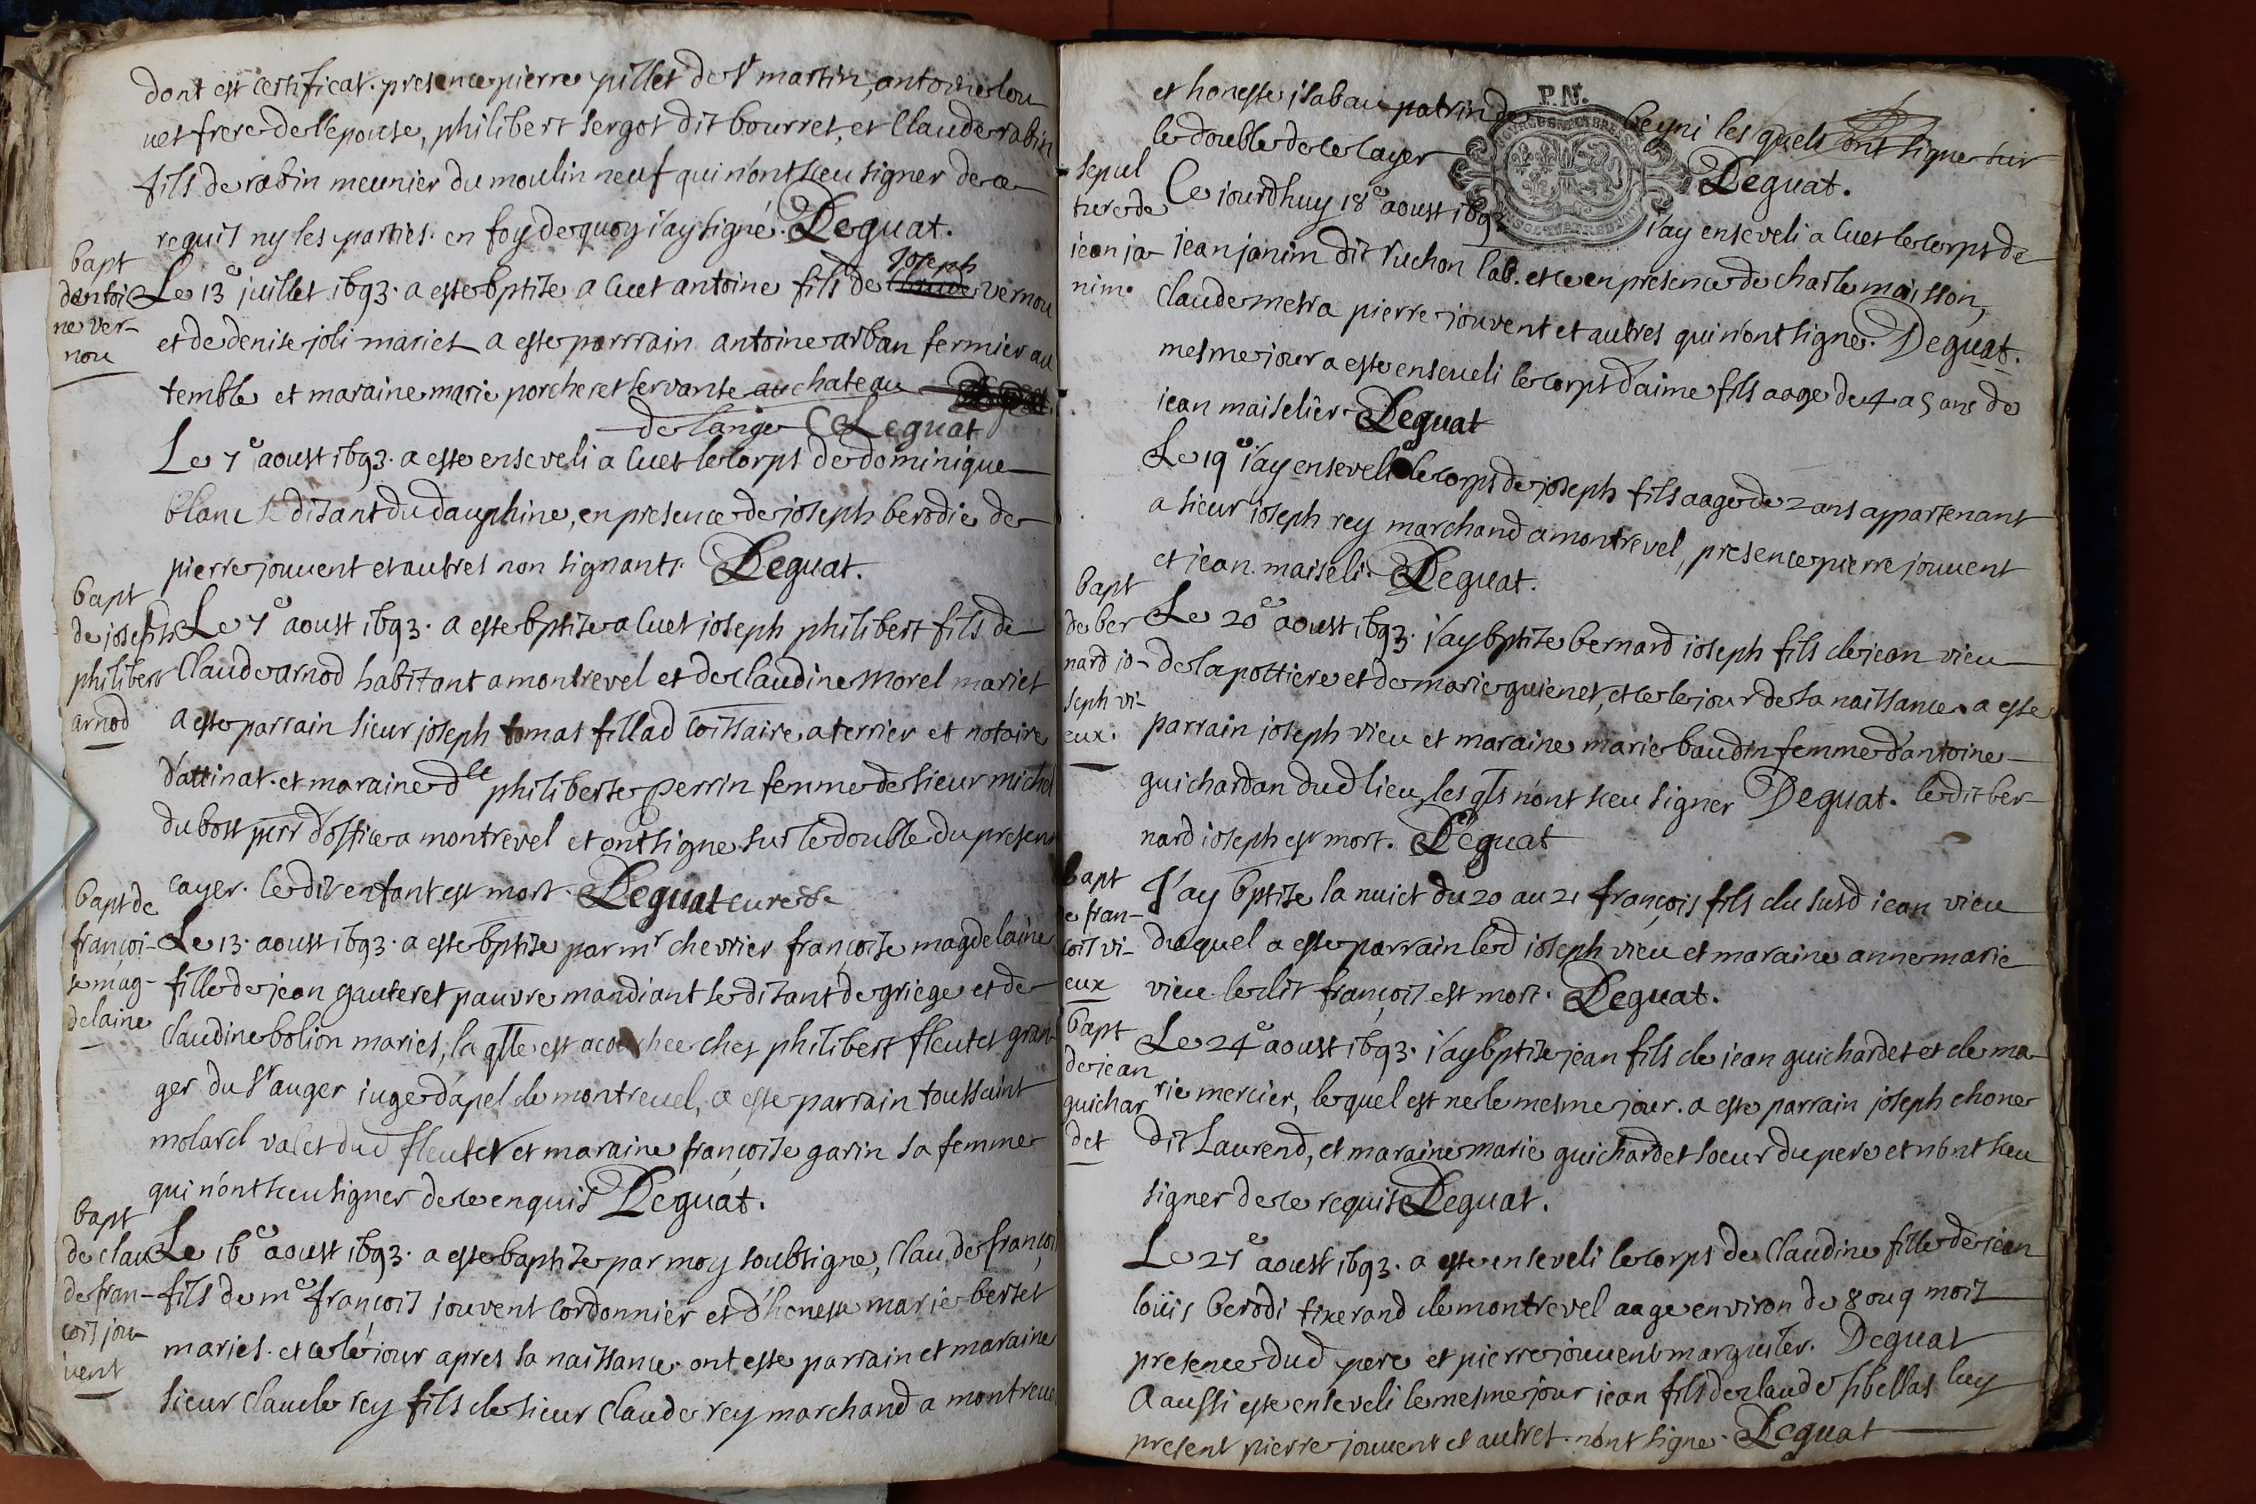 dont est certificat. presence pierre pillet de st martin, antoine lou
uet frere de l'epouse, philibert sergot dit bourret, et Claude rabin
fils de rabin meunier du moulin neuf qui n'ont sceu signer de ce
requis ny les parties. en foy de quoy i'ay signé. Deguat.
bapt
dantoi
ne ver-
nou
Le 13e juillet 1693. a este bptise a Cuet antoine fils de Claude Joseph vernou
et de denise joli mariés a este parrain antoine arban fermier au
temble et maraine marie porcheret servante au chateau
de lange Deguat
Le 7e aoust 1693. a este enseveli a Cuet le corps de dominique
blanc se disant du dauphine, en presence de joseph berodie de
pierre jouvent et autres non signants. Deguat.
bapt
de joseph
philibert
arnod
Le 7e aoust 1693. a este bptise a Cuet joseph philibert fils de
Claude arnod habitant a montrevel et de Claudine morel mariés
a este parrain sieur joseph tomas fillad coissaire a terrier et notaire
d'attinat. et maraine dlle philiberte perrin femme de sieur michel
du bost perr d'office a montrevel et ont signe sur le double du present
cayer. le dit enfant est mort. Deguat cure
bapt de
françoi-
se mag-
delaine
Le 13. aoust 1693. a este bptise par mr chevrier françoise magdelaine
fille de jean gauteret pauvre mandiant se disant de griege et de
Claudine bolion mariés, la qlle est acouchee ches philibert fleutet gran-
ger du sr auger iuge d'apel de montrevel, a este parrain toussaint
molard valet dud fleutet et maraine françoise garin sa femme
qui n'ont sceu signer de ce enquis Deguat.
bapt
de clau
de fran-
cois jou-
vent
Le 16e aoust 1693. a este baptise par moy soubsigne, Claude françois
fils de me françois jouvent cordonnier et d'heneste marie bertet
mariés. et ce le jour apres sa naissance. ont este parrain et maraine
sieur Claude rey fils de sieur Claude rey marchand a montrevel
et honeste isabau patrin de beyni les quels ont signe sur
le double de ce cayer Deguat.
sepul
ture de
jean ja-
nim.
Ce iourdhuy 18e aoust 1693 i'ay enseveli a Cuet le corps de
jean janim dit ruchon lab. et ce en presence de charle maisson,
claude metra pierre jouvent et autres qui n'ont signe. Deguat.
mesme jour a este enseveli le corps d'aime fils aage de 4 a 5 ans de
jean maiselier Deguat
Le 19e i'ay enseveli le corps de joseph fils aage de 2 ans appartenant
a sieur joseph rey marchand a montrevel, presence pierre jouvent
et jean maiseli. Deguat.
bapt
de ber
nard jo-
seph vi-
eux.
Le 20e aoust 1693. i'ay bptise bernard joseph fils de jean vieu
de la pottiere et de marie guienet, et ce le jour de sa naissance. a este
parrain joseph vieu et maraine marie baudin femme d'antoine
guichardan dud lieu les qls n'ont sceu signer Deguat. le dit ber-
nard joseph est mort. Deguat
bapt
de fran-
cois vi-
eux
J'ay bptise la nuict du 20 au 21 françois fils du susd jean vieu
duquel a este parrain led joseph vieu et maraine anne marie
vieu le dit françois est mort. Deguat.
bapt
de jean
guichar
det
Le 24e aoust 1693. i'ay bptise jean fils de jean guichardet et de ma
rie mercier, lequel est ne le mesme jour. a este parrain joseph chone
dit Laurend, et maraine marie guichardet soeur du pere et n'ont sceu
signer de ce requis Deguat.
Le 27e aoust 1693. a este enseveli le corps de Claudine fille de jean
loüis berodi tixerand de montrevel aage environ de 8 ou 9 mois
presence dud pere et pierre jouvent marguiler. Deguat
A aussi este enseveli le mesme jour jean fils de claude sibellas luy
present pierre jouvent et autres. n'ont signe. Deguat
P.N.